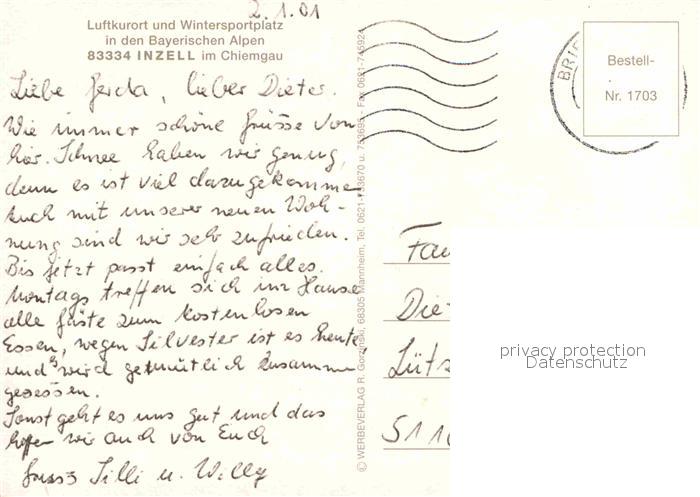 2.1.01
Luftkurort und Wintersportplatz
in den Bayerischen Alpen
83334 INZELL im Chiemgau
Liebe Gerda, lieber Dieter.
Wie immer schöne Grüsse von
hier. Schnee haben wir genug,
denn es ist viel dazugekommen
Auch mit unserer neuen Woh-
nung sind wir sehr zufrieden.
Bis jetzt passt einfach alles.
Montags treffen sich im Hause
alle Gäste zum kostenlosen
Essen, wegen Silvester ist es heute,
und es wird gemütlich zusammen
gesessen.
Sonst geht es uns gut und das
hoffen wir auch von Euch
Gruss Silli u. Willy
© WERBEVERLAG R. Gorzinski, 68305 Mannheim, Tel. 0621-753670 u. 753695 - Fax 0621-745924
BRIE
Bestell-
Nr. 1703
Fam
Die
Lüts
511
privacy protection
Datenschutz